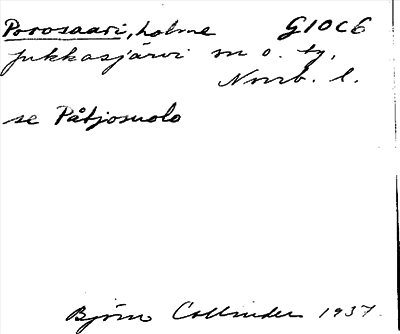 Porosaari, holme G10C6
Jukkasjärvi sn o. tg,
Norrb. l.
se Påtjosuolo
Björn Collinder 1937.